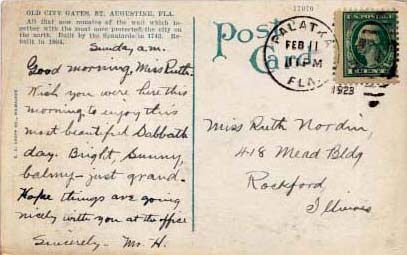 OLD CITY GATES, ST. AUGUSTINE, FLA.
All that now remains of the wall which to-
gether with the moat once protected the city on
the north. Built by the Spaniards in 1743. Re-
built in 1804.
Sunday a.m.
Good morning, Miss Ruth.
Wish you were here this
morning to enjoy this
most beautiful Sabbath
day. Bright, sunny,
balmy - just grand.
Hope things are going
nicely with you at the office
Sincerely - Mr. H.
17070
Post
Card
PALATKA
FEB 11
PM
FLA.
1923
1 CENT 1
Miss Ruth Nordin,
418 Mead Bldg
Rockford,
Illinois